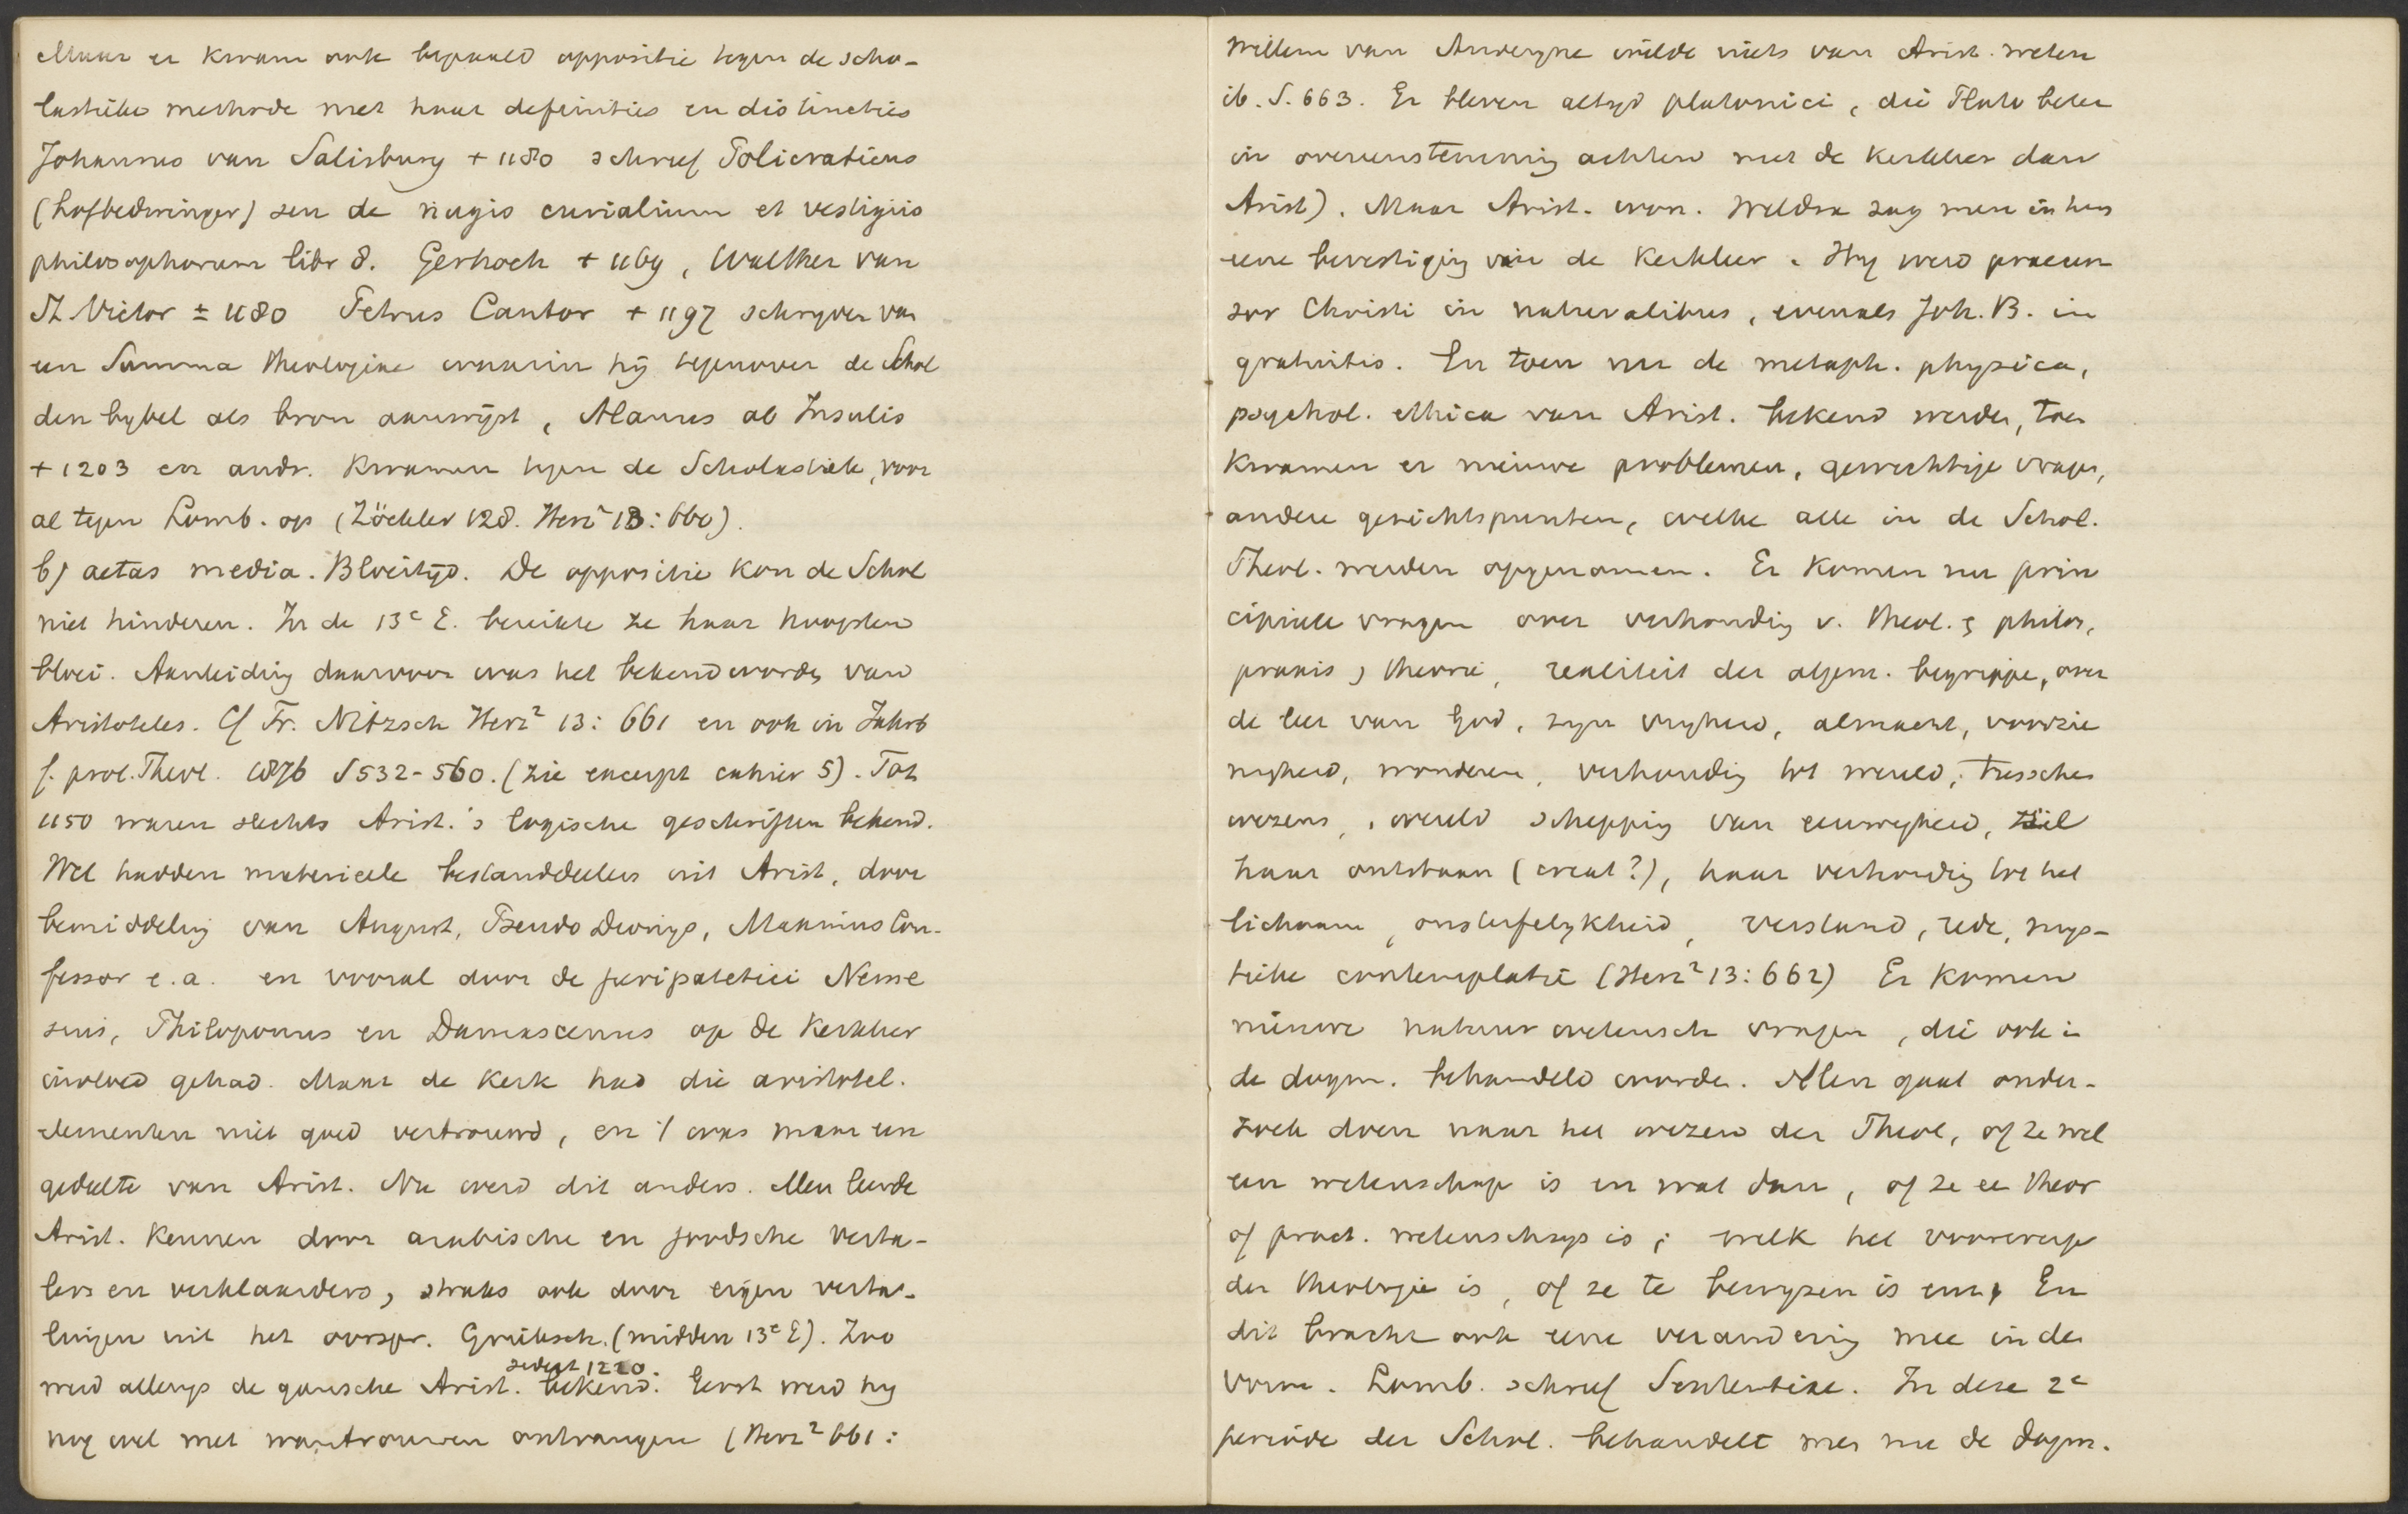 Maar er kwam ook bepaald oppositie tegen de scho-
lastieke methode met haar definities en distincties
Johannes van Salisbury + 1180 schreef Policraticus
(hofbedwinger) seu de nugis curialium et vestigiis
philosophorum libr 8. Gerhoch + 1169, Walther van
St. Victor ± 1180 Petrus Cantor + 1197 schryver van
een Summa theologiae waarin hij tegenover de Schol
den bybel als bron aanwijst, Alanus ab Insulis
+ 1203 en andr. kwamen tegen de Scholastiek, voor
al tegen Lomb. op (Zöckler 128. Herz² 13: 660).
b) aetas media. Bloeitijd. De oppositie kon de Schol
niet hinderen. In de 13e E. bereikte ze haar hoogsten
bloei. Aanleiding daarvoor was het bekend worden van
Aristoteles. Cf Fr. Nitzsch Herz² 13: 661 en ook in Jahrb
f. prot. Theol. 1876 S 532-560. (zie excerpt cahier 5). Tot
1150 waren slechts Arist.'s logische geschriften bekend.
Wel hadden materieele bestanddeelen uit Arist, door
bemiddeling van August, Pseudo Dionys, Maximus Con-
fessor e.a. en vooral door de peripatetici Neme
sius, Philoponus en Damascenus op de Kerkleer
invloed gehad. Maar de Kerk had die aristotel.
elementen niet goed vertrouwd, en 't was maar een
gedeelte van Arist. Nu werd dit anders. Men leerde
Arist. kennen door arabische en joodsche verta-
lers en verklaarders, straks ook door eigen verta-
lingen uit het oorspr. Grieksch. (midden 13e E). Zoo
werd allengs de gansche Arist. sedert 1220. bekend. Eerst werd hy
nog wel met wantrouwen ontvangen (Herz² 661:
Willem van Auvergne wilde niets van Arist. weten
ib. S. 663. Er bleven altyd platonici, die Plato beter
in overeenstemming achtten met de Kerkleer dan
Arist). Maar Arist. won. Weldra zag men in hem
eene bevestiging van de Kerkleer. Hy werd praecur
sor Christi in naturalibus, evenals Joh. B. in
gratuitis. En toen nu de metaph. physica,
psychol. ethica van Arist. bekend werden, toen
kwamen er nieuwe problemen, gewichtige vragen,
andere gezichtspunten, welke alle in de Schol.
Theol. werden opgenomen. Er komen nu prin
cipieele vragen over verhouding v. theol. & philos,
praxis, theorie, realiteit der algem. begrippen, over
de leer van God, zyn vryheid, almacht, voorzie
nigheid, wonderen, verhouding tot wereld, tussche
wezens, wereld schepping van eeuwigheid, ziel
haar ontstaan (creat?), haar verhouding tot het
lichaam, onsterfelykheid, verstand, rede, mys-
tieke contemplatie (Herz² 13: 662) Er komen
nieuwe natuurwetensch vragen, die ook in
de dogm. behandeld worden. Men gaat onder-
zoek doen naar het wezen der Theol, of ze wel
een wetenschap is en wat dan, of ze ee theor
of pract. wetenschap is; welk het voorwerp
der theologie is, of ze te bewyzen is enz. En
dit bracht ook eene verandering mee in de
vorm. Lomb. schreef Sententiae. In deze 2e
periode der Schol. behandelt men nu de dogm.